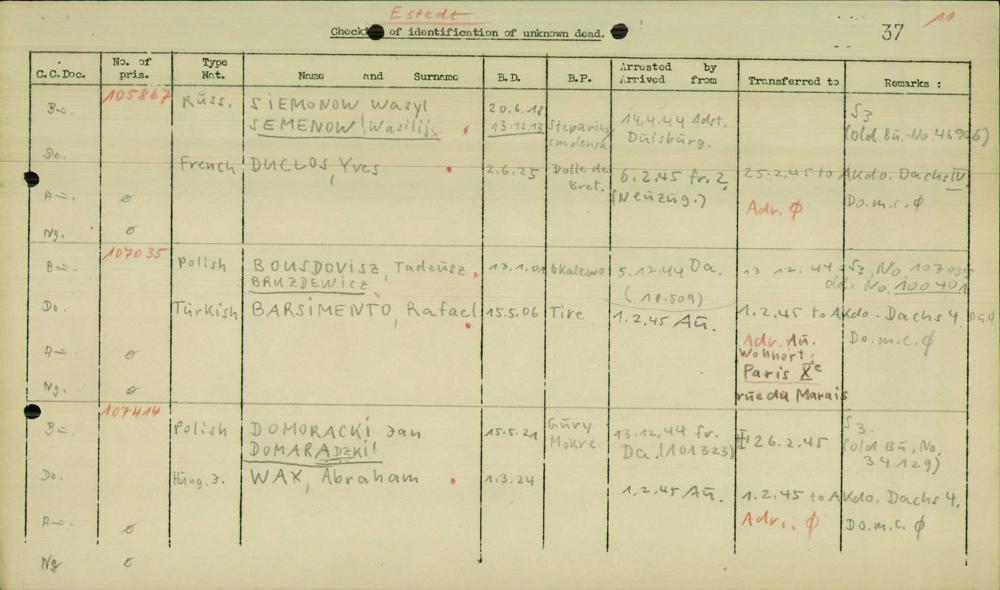 Estedt
11
Checki of identification of unknown dead.
37
C.C.Doc.
No. of pris.
Type Nat.
Name and Surname
B.D.
B.P.
Arrested by
Arrived from
Transferred to
Remarks :
105867
Bu.
Russ.
SIEMONOW Wasyl
20.6.18
14.4.44 Adst.
S3
SEMENOW Wasilij
13.12.13
Duisburg.
(old Bü.-No. 46946)
Do.
French
DUCLOS, Yves
2.6.25
Dolle de
Bret.
6.2.45 fr. 2
(Neuzug.)
25.2.45 to AKdo. Dachs IV
Au.
ø
Adr. ϕ
Do.m.c. ϕ
Ng.
ø
107035
Bu.
Polish
BOUSDOVISZ, Tadeusz
13.1.01
5.12.44 Da.
13 12.44
S3, No. 107035
BRUZDEWICZ
(18.509)
old. No. 100401
Do.
Türkish
BARSIMENTO, Rafael
15.5.06
Tire
1.2.45 Au.
1.2.45 to AKdo. Dachs 4.
Au.
ø
Adr. Au.
Do.m.c. ϕ
Wohnort:
Paris Xe
Ng.
ø
rue du Marais
107414
Bu.
Polish
DOMORACKI Jan
15.5.21
Gury
Mokre
13.12.44 fr.
Da. (101323)
26.2.45
S3.
DOMARADZKI!
(old Bü. No.
34129)
Do.
Hung. J.
WAX, Abraham
1.3.24
1.2.45 Au.
1.2.45 to AKdo. Dachs 4.
Au.
ø
Adr.: ϕ
Do.m.c. ϕ
Ng
ø